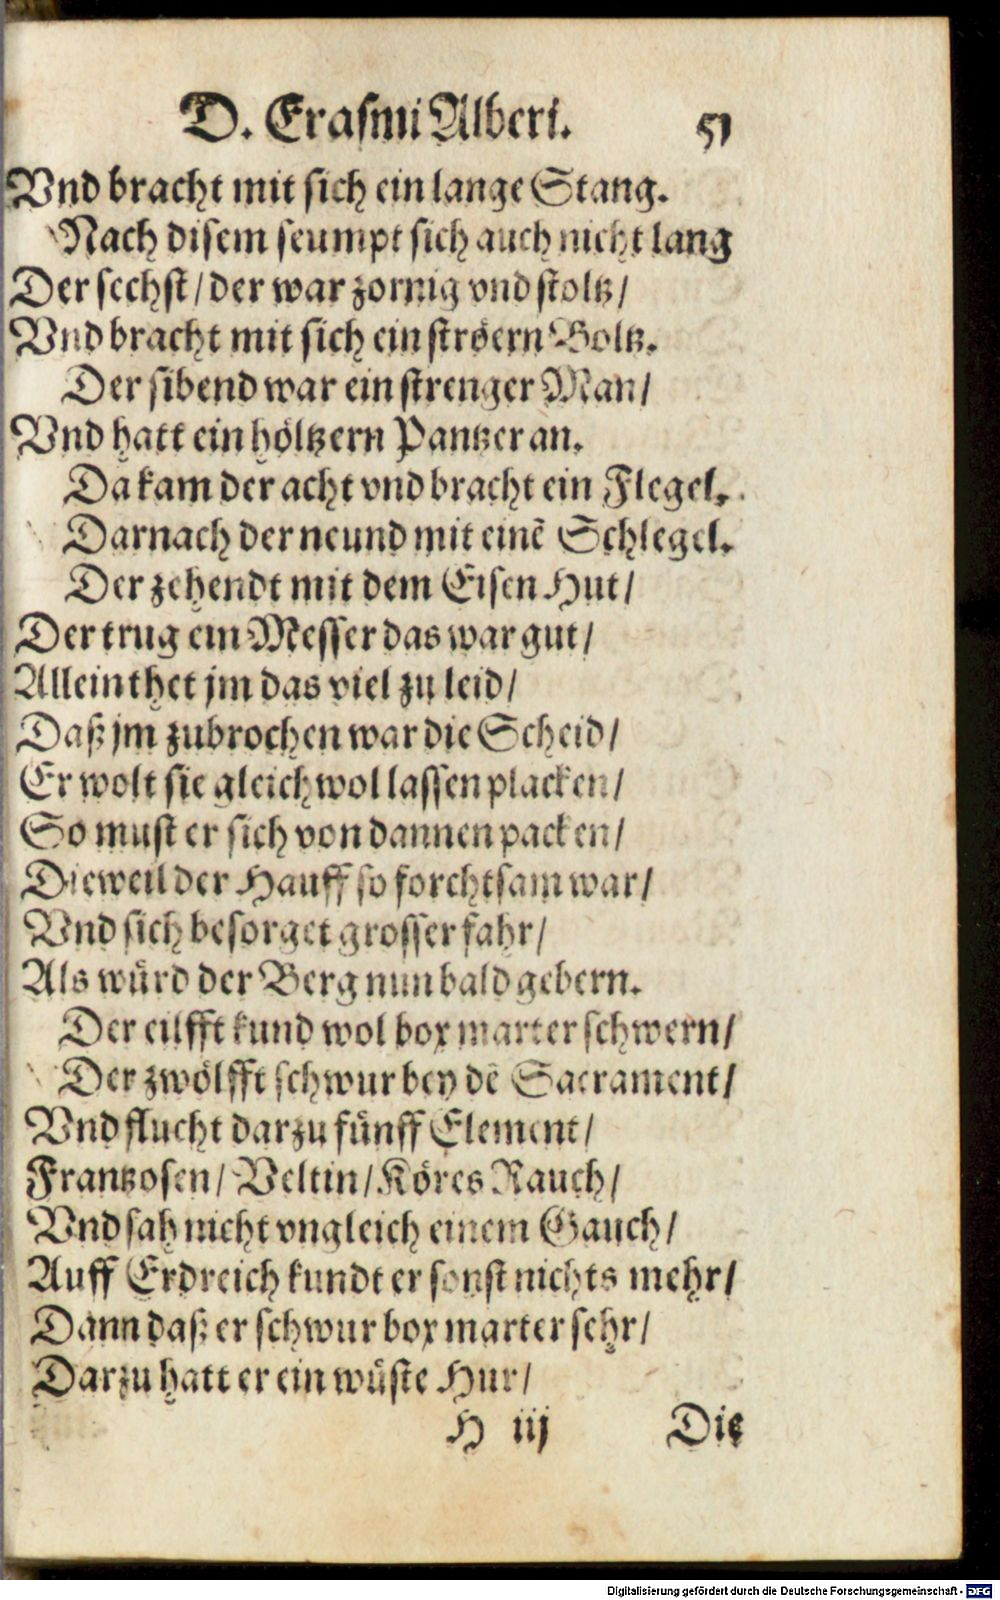 D. Erasmi Alberi. 51
Vnd bracht mit sich ein lange Stang.
Nach disem seumpt sich auch nicht lang
Der sechst / der war zornig vnd stoltz /
Vnd bracht mit sich ein ströern Boltz.
Der sibend war ein strenger Man /
Vnd hatt ein höltzern Pantzer an.
Da kam der acht vnd bracht ein Flegel.
Darnach der neund mit einē Schlegel.
Der zehendt mit dem Eisen Hut /
Der trug ein Messer das war gut /
Allein thet jm das viel zu leid /
Daß jm zubrochen war die Scheid /
Er wolt sie gleich wol lassen placken /
So must er sich von dannen packen /
Dieweil der Hauff so forchtsam war /
Vnd sich besorget grosser fahr /
Als würd der Berg nun bald gebern.
Der eilfft kund wol box marter schwern /
Der zwölfft schwur bey dē Sacrament /
Vnd flucht darzu fünff Element /
Frantzosen / Veltin / Köres Rauch /
Vnd sah nicht vngleich einem Gauch /
Auff Erdreich kundt er sonst nichts mehr /
Dann daß er schwur box marter sehr /
Darzu hatt er ein wüste Hur /
H iij Die
Digitalisierung gefördert durch die Deutsche Forschungsgemeinschaft - DFG